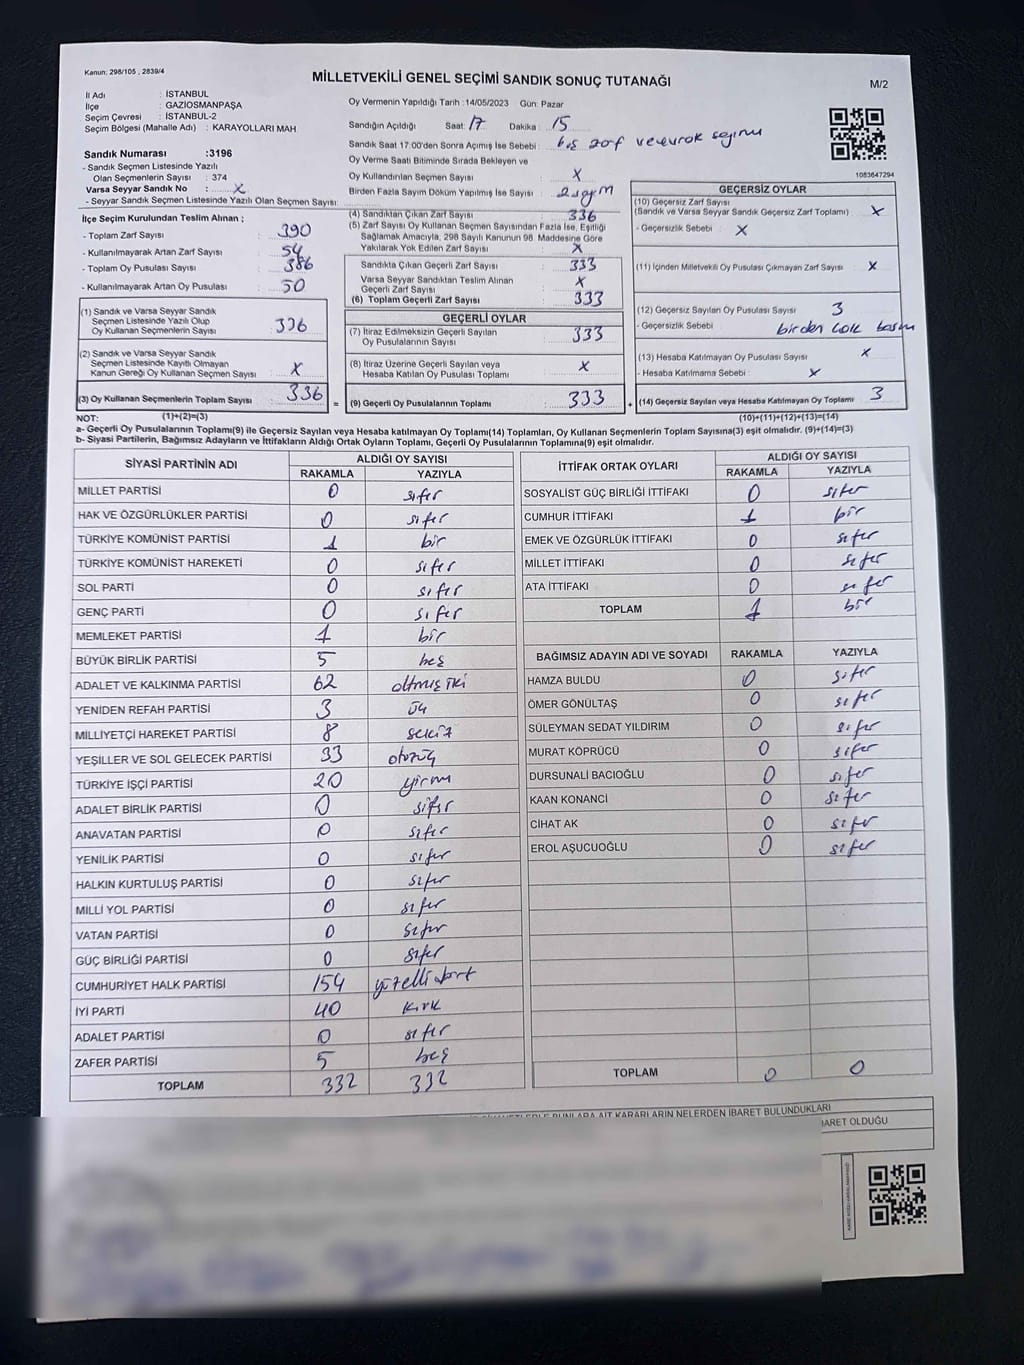 Kanun: 298/105 , 2839/4
MİLLETVEKİLİ GENEL SEÇİMİ SANDIK SONUÇ TUTANAĞI
M/2
İl Adı : İSTANBUL
İlçe : GAZİOSMANPAŞA
Seçim Çevresi : İSTANBUL-2
Seçim Bölgesi (Mahalle Adı) : KARAYOLLARI MAH
Oy Vermenin Yapıldığı Tarih : 14/05/2023 Gün: Pazar
Sandığın Açıldığı Saat: 17 Dakika : 15
Sandık Saat 17:00'den Sonra Açımış İse Sebebi : boş zarf ve evrak sayımı
Oy Verme Saati Bitiminde Sırada Bekleyen ve
Oy Kullandırılan Seçmen Sayısı : X
Birden Fazla Sayım Döküm Yapılmış İse Sayısı : 2 sayım
1083647294
Sandık Numarası :3196
- Sandık Seçmen Listesinde Yazılı
Olan Seçmenlerin Sayısı : 374
Varsa Seyyar Sandık No : X
- Seyyar Sandık Seçmen Listesinde Yazılı Olan Seçmen Sayısı:
İlçe Seçim Kurulundan Teslim Alınan ;
- Toplam Zarf Sayısı : 390
- Kullanılmayarak Artan Zarf Sayısı : 54
- Toplam Oy Pusulası Sayısı : 386
- Kullanılmayarak Artan Oy Pusulası : 50
(1) Sandık ve Varsa Seyyar Sandık
Seçmen Listesinde Yazılı Olup
Oy Kullanan Seçmenlerin Sayısı : 336
(2) Sandık ve Varsa Seyyar Sandık
Seçmen Listesinde Kayıtlı Olmayan
Kanun Gereği Oy Kullanan Seçmen Sayısı : X
(3) Oy Kullanan Seçmenlerin Toplam Sayısı : 336 =
(4) Sandıktan Çıkan Zarf Sayısı : 336
(5) Zarf Sayısı Oy Kullanan Seçmen Sayısından Fazla İse, Eşitliği
Sağlamak Amacıyla, 298 Sayılı Kanunun 98. Maddesine Göre
Yakılarak Yok Edilen Zarf Sayısı : X
Sandıkta Çıkan Geçerli Zarf Sayısı : 333
Varsa Seyyar Sandıktan Teslim Alınan
Geçerli Zarf Sayısı : X
(6) Toplam Geçerli Zarf Sayısı : 333
GEÇERLİ OYLAR
(7) İtiraz Edilmeksizin Geçerli Sayılan
Oy Pusulalarının Sayısı : 333
(8) İtiraz Üzerine Geçerli Sayılan veya
Hesaba Katılan Oy Pusulası Toplamı : X
(9) Geçerli Oy Pusulalarının Toplamı : 333 +
GEÇERSİZ OYLAR
(10) Geçersiz Zarf Sayısı
(Sandık ve Varsa Seyyar Sandık Geçersiz Zarf Toplamı) : X
- Geçersizlik Sebebi : X
(11) İçinden Milletvekili Oy Pusulası Çıkmayan Zarf Sayısı : X
(12) Geçersiz Sayılan Oy Pusulası Sayısı : 3
- Geçersizlik Sebebi : birden çok basım
(13) Hesaba Katılmayan Oy Pusulası Sayısı : X
- Hesaba Katılmama Sebebi : X
(14) Geçersiz Sayılan veya Hesaba Katılmayan Oy Toplamı : 3
NOT: (1)+(2)=(3) (10)+(11)+(12)+(13)=(14)
a- Geçerli Oy Pusulalarının Toplamı(9) ile Geçersiz Sayılan veya Hesaba katılmayan Oy Toplamı(14) Toplamları, Oy Kullanan Seçmenlerin Toplam Sayısına(3) eşit olmalıdır. (9)+(14)=(3)
b- Siyasi Partilerin, Bağımsız Adayların ve İttifakların Aldığı Ortak Oyların Toplamı, Geçerli Oy Pusulalarının Toplamına(9) eşit olmalıdır.
SİYASİ PARTİNİN ADI ALDIĞI OY SAYISI
RAKAMLA YAZIYLA
MİLLET PARTİSİ 0 sıfır
HAK VE ÖZGÜRLÜKLER PARTİSİ 0 sıfır
TÜRKİYE KOMÜNİST PARTİSİ 1 bir
TÜRKİYE KOMÜNİST HAREKETİ 0 sıfır
SOL PARTİ 0 sıfır
GENÇ PARTİ 0 sıfır
MEMLEKET PARTİSİ 1 bir
BÜYÜK BİRLİK PARTİSİ 5 beş
ADALET VE KALKINMA PARTİSİ 62 altmış iki
YENİDEN REFAH PARTİSİ 3 üç
MİLLİYETÇİ HAREKET PARTİSİ 8 sekiz
YEŞİLLER VE SOL GELECEK PARTİSİ 33 otuzüç
TÜRKİYE İŞÇİ PARTİSİ 20 yirmi
ADALET BİRLİK PARTİSİ 0 sıfır
ANAVATAN PARTİSİ 0 sıfır
YENİLİK PARTİSİ 0 sıfır
HALKIN KURTULUŞ PARTİSİ 0 sıfır
MİLLİ YOL PARTİSİ 0 sıfır
VATAN PARTİSİ 0 sıfır
GÜÇ BİRLİĞİ PARTİSİ 0 sıfır
CUMHURİYET HALK PARTİSİ 154 yüzellidört
İYİ PARTİ 40 kırk
ADALET PARTİSİ 0 sıfır
ZAFER PARTİSİ 5 beş
TOPLAM 332 332
İTTİFAK ORTAK OYLARI ALDIĞI OY SAYISI
RAKAMLA YAZIYLA
SOSYALİST GÜÇ BİRLİĞİ İTTİFAKI 0 sıfır
CUMHUR İTTİFAKI 1 bir
EMEK VE ÖZGÜRLÜK İTTİFAKI 0 sıfır
MİLLET İTTİFAKI 0 sıfır
ATA İTTİFAKI 0 sıfır
TOPLAM 1 bir
BAĞIMSIZ ADAYIN ADI VE SOYADI RAKAMLA YAZIYLA
HAMZA BULDU 0 sıfır
ÖMER GÖNÜLTAŞ 0 sıfır
SÜLEYMAN SEDAT YILDIRIM 0 sıfır
MURAT KÖPRÜCÜ 0 sıfır
DURSUNALİ BACIOĞLU 0 sıfır
KAAN KONANCİ 0 sıfır
CİHAT AK 0 sıfır
EROL AŞUCUOĞLU 0 sıfır
TOPLAM 0 0
BUNLARA AİT KARARLARIN NELERDEN İBARET BULUNDUKLARI
İBARET OLDUĞU